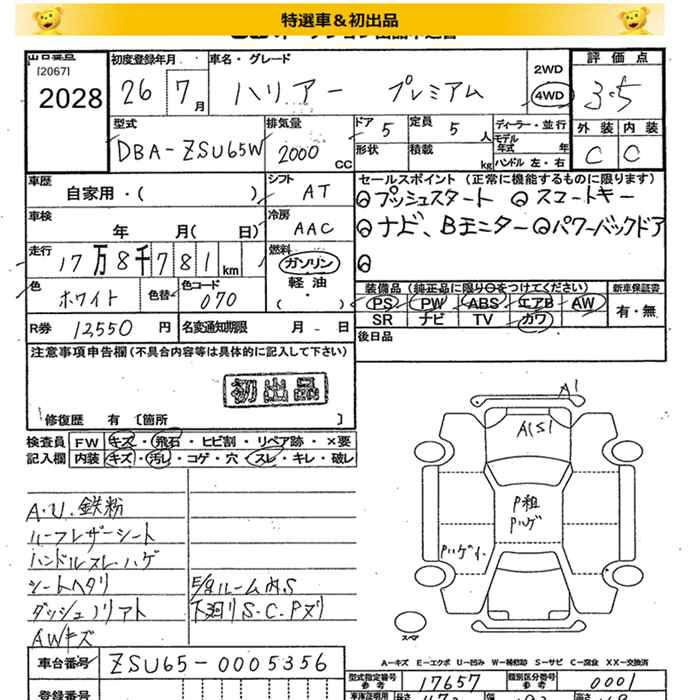 特選車&初出品
出品番号
[2067]
2028
初度登録年月
26 7月
車名・グレード
ハリアー プレミアム
2WD
4WD
評価点
3.5
外装 内装
C C
型式
DBA-ZSU65W
排気量
2000 CC
ドア 5
形状
定員 5 人
積載 kg
ディーラー・並行
モデル年式 年
ハンドル 左・右
車歴
自家用・( )
シフト AT
車検
年 月( 日)
冷房 AAC
走行
17万8千781km
燃料
ガソリン
軽油
( ・ )
色 ホワイト
色替
色コード 070
R券 12550 円
名変通知期限 月 - 日
セールスポイント(正常に機能するものに限ります)
プッシュスタート スマートキー
ナビ、Bモニター パワーバックドア
装備品(純正品に限り○をつけてください)
PS PW ABS エアB AW
SR ナビ TV カワ
新車保証書
有・無
後日品
注意事項申告欄(不具合内容等は具体的に記入して下さい)
初出品
修復歴 有〔箇所 〕
検査員記入欄
FW キズ・飛石・ヒビ割・リペア跡・×要
内装 キズ・汚レ・コゲ・穴・スレ・キレ・破レ
A.U.鉄粉
ハーフレザーシート
ハンドルスレハゲ
シートヘタリ
ダッシュノリアト
AWキズ
E/gルーム内S
下廻りS・C・Pヌリ
A1
A1S1
P粗
Pハゲ
Pハゲ
スペア
A-キズ E-エクボ U-凹み W-補修跡 S-サビ C-腐食 XX-交換済
車台番号
ZSU65-0005356
登録番号
型式指定番号
参考
17657
類別区分番号
参考
0001
車庫証明用
長さ